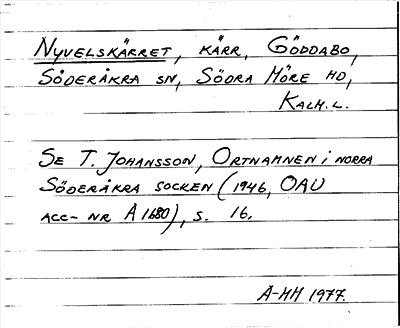 NYVELSKÄRRET, KÄRR, GÖDDABO,
SÖDERÅKRA SN, SÖDRA MÖRE HD,
KALM. L.
SE T. JOHANSSON, ORTNAMNEN i NORRA
SÖDERÅKRA SOCKEN (1946, OAU
ACC-NR A 1680), S. 16.
A-HH 1977.